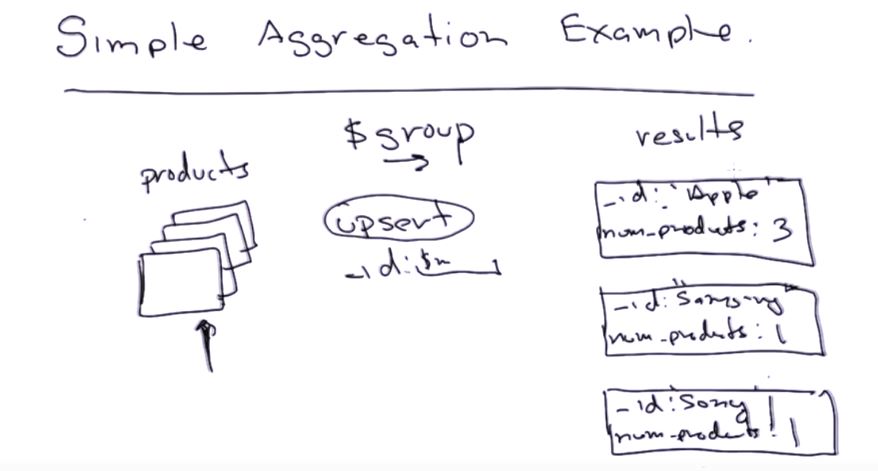 Simple Aggregation Example.
products
$group
upsert
_id: $m
results
_id: "Apple"
num_products: 3
_id: "Samsung"
num_products: 1
_id: "Sony"
num_products: 1